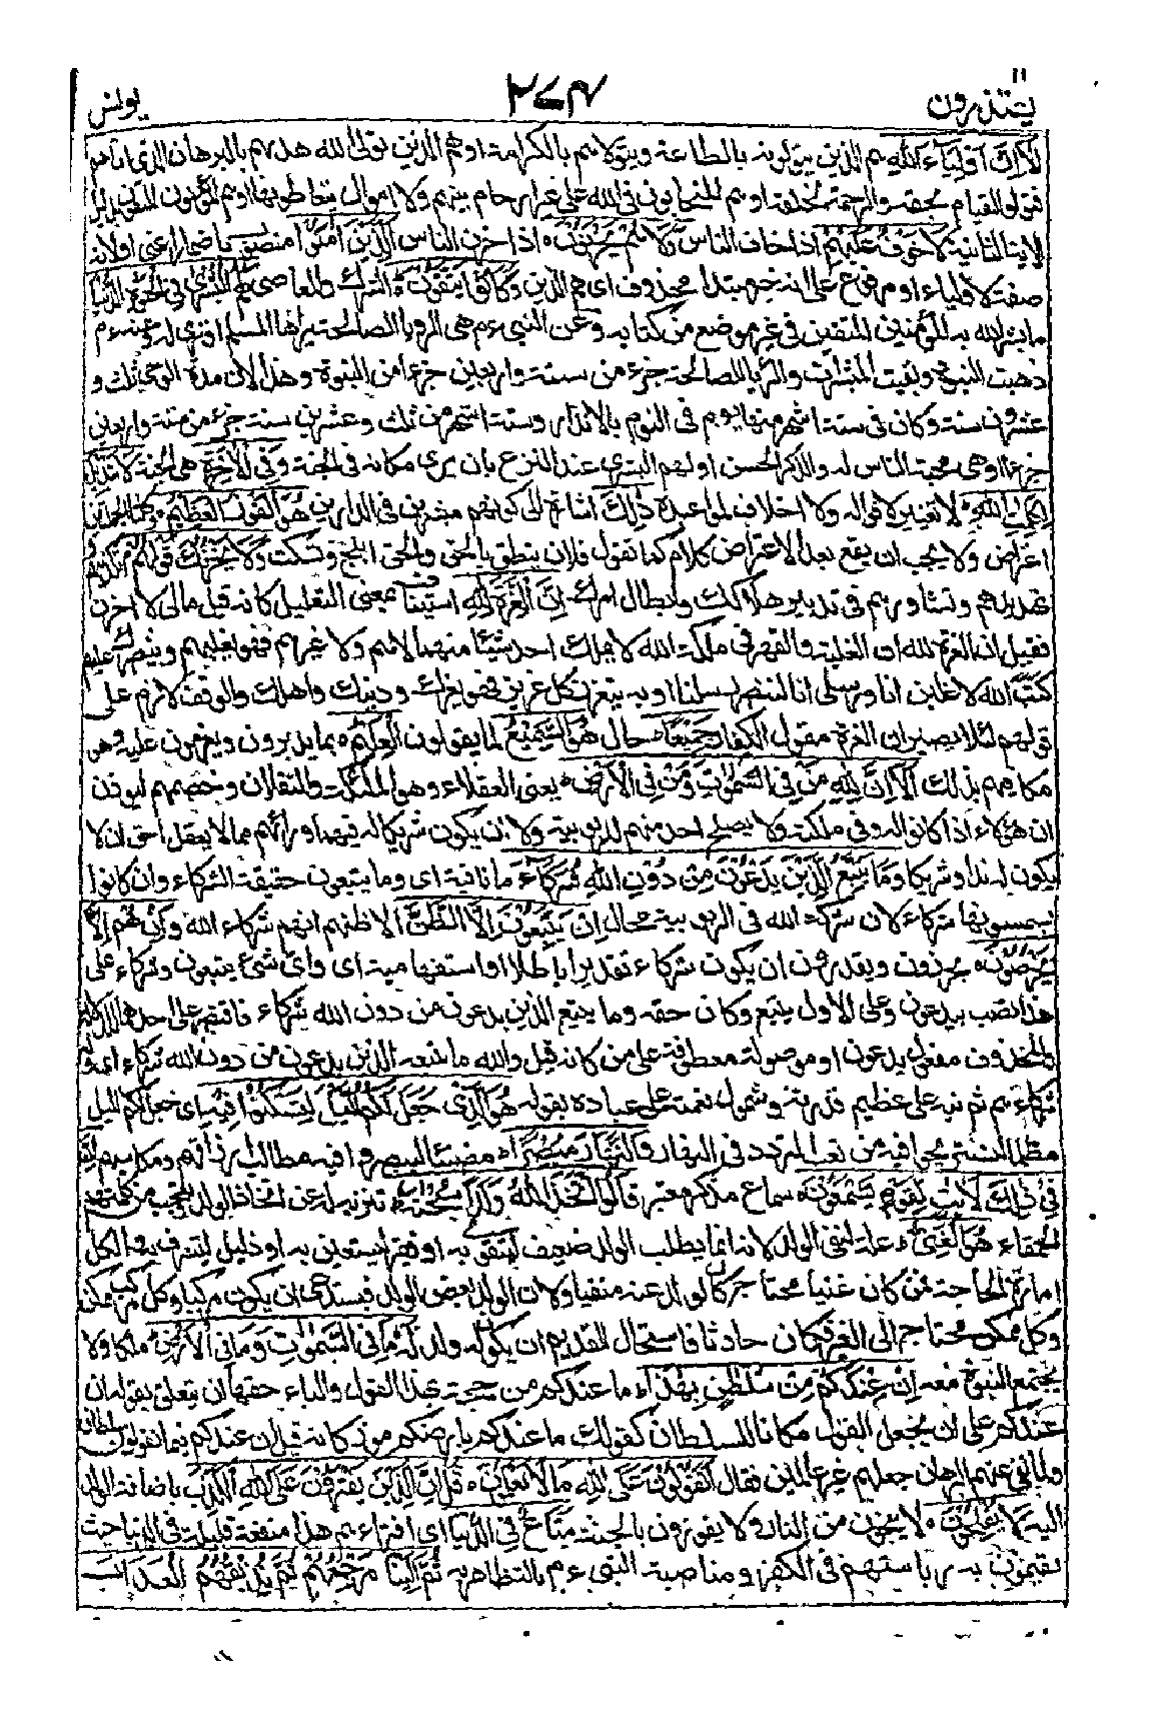 يعتذرون ١١ ٢٧٤ يونس
الا ان اولياء الله هم الذين يتولونه بالطاعة ويتولاهم بالكرامة او هم الذين تولى الله هداهم بالبرهان الذي اتاهم
فتولوا القيام بحقه والرحمة لخلقه او هم المتحابون في الله على غير ارحام بينهم ولا اموال يتعاطونها او هم المؤمنون المتقون بدليل
الاية الثانية لا خوف عليهم اذا خاف الناس ولا هم يحزنون اذا حزن الناس الذين امنوا منصوب باضمار اعني او لانه
صفة لاولياء او مرفوع على انه خبر مبتدا محذوف اي هم الذين وكانوا يتقون الشرك والمعاصي لهم البشرى في الحيوة الدنيا
ما بشر الله به المؤمنين المتقين في غير موضع من كتابه وعن النبي ءم هي الرويا الصالحة يراها المسلم او ترى له وعنه ءم
ذهبت النبوة وبقيت المبشرات والرؤيا الصالحة جزء من ستة واربعين جزءا من النبوة وهذا لان مدة الوحي ثلث و
عشرون سنة وكان في ستة اشهر منها يؤمر في النوم بالانذار وستة اشهر من ثلث وعشرين سنة جزء من ستة واربعين
جزءا او هي محبة الناس له والذكر الحسن او لهم البشرى عند النزع بان يرى مكانه في الجنة وفي الاخرة هي الجنة لا تبديل
لكلمت الله لا تغيير لاقواله ولا اخلاف لمواعيده ذلك اشارة الى كونهم مبشرين في الدارين هو الفوز العظيم وكلتا الجملتين
اعتراض ولا يجب ان يقع بعد الاعتراض كلام كما تقول فلان ينطق بالحق والحق ابلج وتسكت ولا يحزنك قولهم تكذيبهم و
تهديدهم وتشاورهم في تدبير هلاكك وابطال امرك ان العزة لله استيناف بمعنى التعليل كانه قيل مالي لا احزن
فقيل ان العزة لله اي الغلبة والقهر في ملكة الله لا يملك احد شيئا منهما لا هم ولا غيرهم فهو يغلبهم وينصرك عليهم
كتب الله لاغلبن انا ورسلي انا لننصر رسلنا او به يتعزز كل عزيز فهو يعزك ودينك واهلك والوقف لازم على
قولهم لئلا يصير ان العزة مقول الكفار جميعا حال هو السميع لما يقولون العليم بما يدبرون ويعزمون عليه وهو
مكافيهم بذلك الا ان لله من في السموت ومن في الارض يعني العقلاء وهو الملئكة والثقلان وخصهم ليؤذن
ان هؤلاء اذا كانوا له وفي ملكته ولا يصلح احد منهم للربوبية ولا ان يكون شريكا له فيها وراءهم مما لا يعقل احق ان لا
يكون له ندا وشريكا وما يتبع الذين يدعون من دون الله شركاء ما نافية اي وما يتبعون حقيقة الشركاء وان كانوا
يسمونها شركاء لان شركة الله في الربوبية محال ان يتبعون الا الظن الا ظنهم انهم شركاء الله وان هم الا
يخرصون يحزرون ويقدرون ان يكون شركاء تقديرا باطلا او استفهامية اي واي شيء يتبعون وشركاء على
هذا نصب بيدعون وعلى الاول يتبع وكان حقه وما يتبع الذين يدعون من دون الله شركاء شركاء فاقتصر على احدهما للدلالة
والمحذوف مفعول يدعون او موصولة معطوفة على من كانه قيل ولله ما يتبعه الذين يدعون من دون الله شركاء اي وله
شركاءهم ثم نبه على عظيم قدرته وشمول نعمته على عباده بقوله هو الذي جعل لكم الليل لتسكنوا فيه اي جعل لكم الليل
مظلما لتستريحوا فيه من تعب التردد في النهار والنهار مبصرا مضيئا لتبصروا فيه مطالب ارزاقكم ومكاسبكم ان
في ذلك لايت لقوم يسمعون سماع مذكر معتبر قالوا اتخذ الله ولدا سبحنه تنزيه له عن اتخاذ الولد وتعجب من كلمتهم
الحمقاء هو الغني علة لنفي الولد لانه انما يطلب الولد ضعيف ليتقوى به او فقير ليستعين به او ذليل ليتشرف به والكل
امارة الحاجة فمن كان غنيا غير محتاج كان الولد عنه منفيا ولان الولد بعض الوالد فيستدعي ان يكون مركبا وكل مركب ممكن
وكل ممكن محتاج الى الغير فكان حادثا فاستحال القديم ان يكون له ولد له ما في السموت وما في الارض ملكا ولا
يجتمع النبوة معه ان عندكم من سلطن بهذا ما عندكم من حجة بهذا القول والباء حقها ان يتعلق بقوله ان
عندكم على ان يجعل القول مكانا للسلطان كقولك ما عندكم بارضكم موز كانه قيل ان عندكم بما تقولون سلطان
ولما نفى عنهم البرهان جعلهم غير عالمين فقال اتقولون على الله ما لا تعلمون قل ان الذين يفترون على الله الكذب باضافة الولد
اليه لا يفلحون لا ينجون من النار ولا يفوزون بالجنة متاع في الدنيا اي افتراءهم هذا منفعة قليلة في الدنيا حيث
يقيمون به رياستهم في الكفر ومناصبة النبي ءم بالتظاهر به ثم الينا مرجعهم ثم نذيقهم العذاب